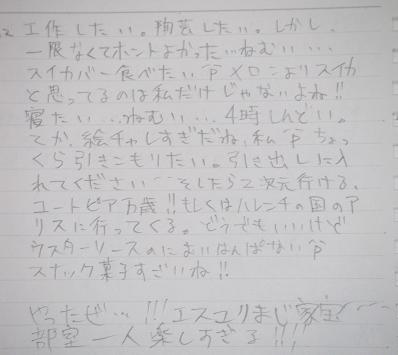 工作したい。陶芸したい。しかし、
一限なくてホントよかった…ねむい…
スイカバー食べたいpメロンよりスイカ
と思ってるのは私だけじゃないよね!!
寝たい…ねむい…4時しんどい。
てか、絵チャしすぎだね、私pちょっ
くら引きこもりたい。引き出しに入
れてください…そしたら2次元行ける、
ユートピア万歳!!もしくはハレンチの国のア
リスに行ってくる。どうでもいいけど
ウスターソースのにおいはんぱないp
スナック菓子すごいね!!
やったぜ…!!!エスユリまじ
部室一人楽しすぎる!!